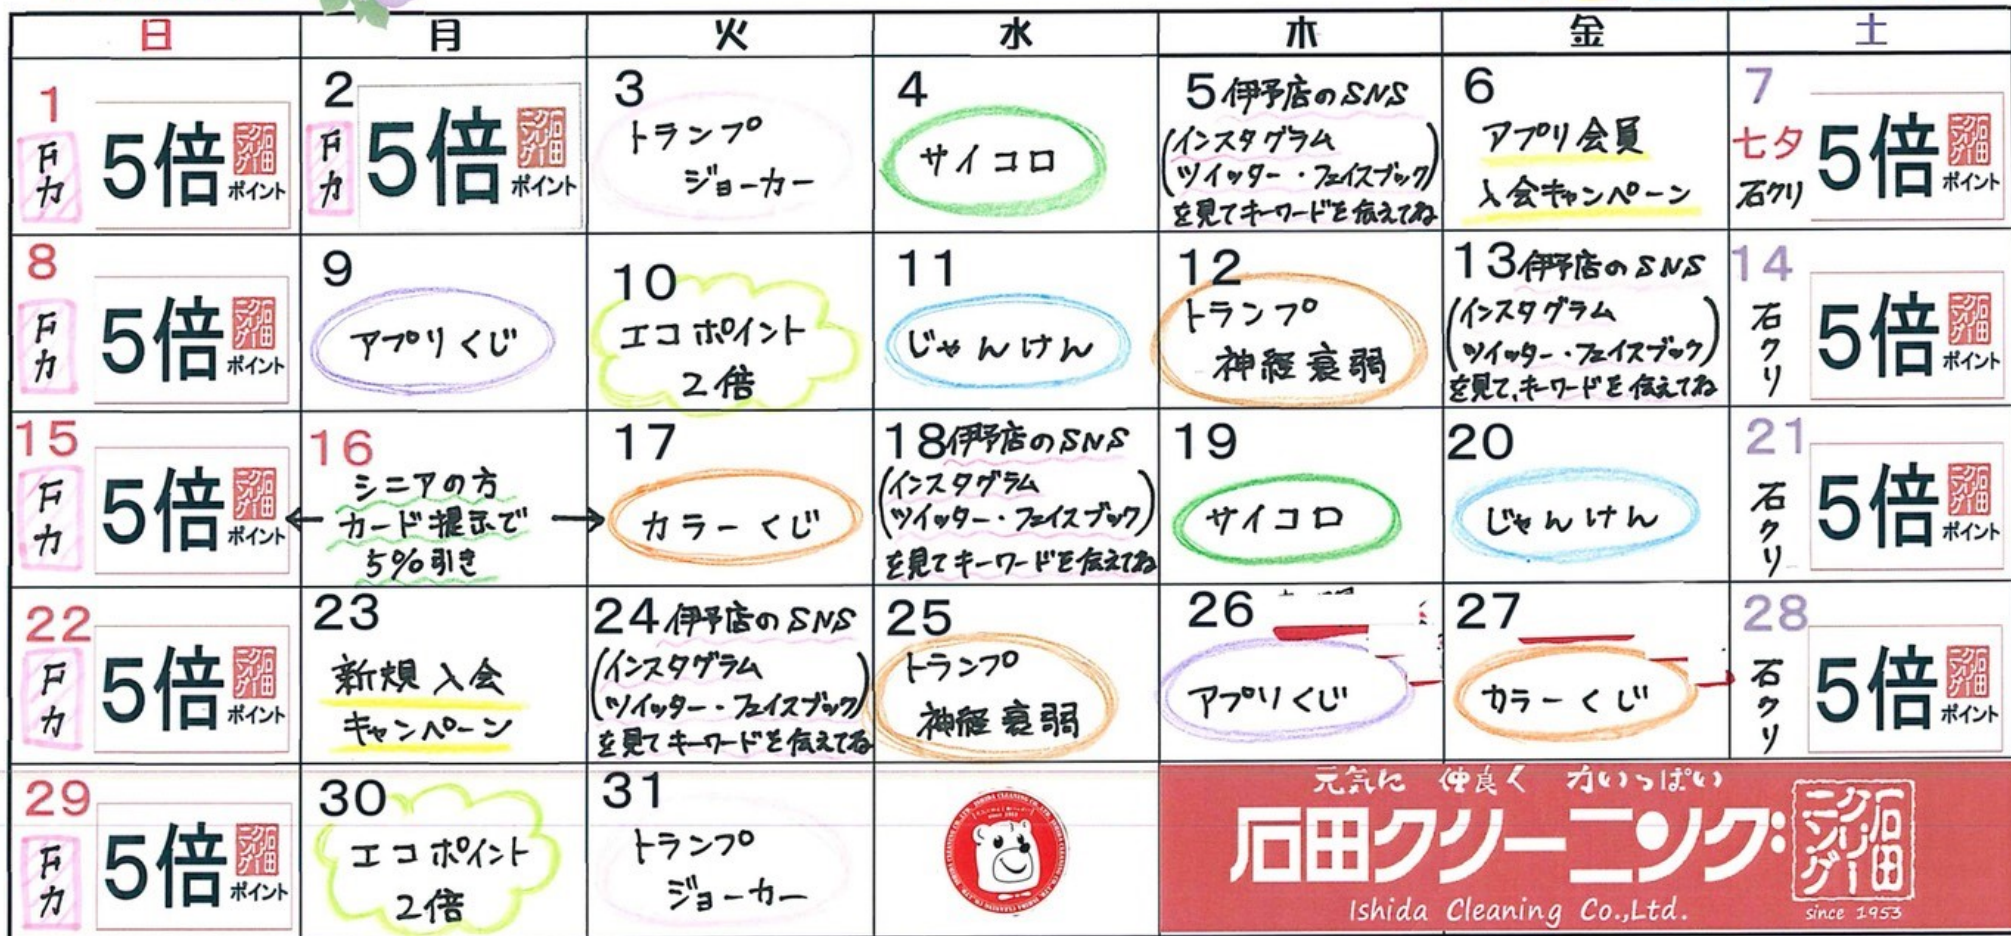 日 月 火 水 木 金 土
1
Fカ
5倍
石田クリーニング
ポイント
2
Fカ
5倍
石田クリーニング
ポイント
3
トランプ
ジョーカー
4
サイコロ
5 伊予店のSNS
(インスタグラム
ツイッター・フェイスブック)
を見てキーワードを伝えてね
6
アプリ会員
入会キャンペーン
7
七夕
石クリ
5倍
石田クリーニング
ポイント
8
Fカ
5倍
石田クリーニング
ポイント
9
アプリくじ
10
エコポイント
2倍
11
じゃんけん
12
トランプ
神経衰弱
13 伊予店のSNS
(インスタグラム
ツイッター・フェイスブック)
を見て、キーワードを伝えてね
14
石クリ
5倍
石田クリーニング
ポイント
15
Fカ
5倍
石田クリーニング
ポイント
16
シニアの方
← カード提示で →
5%引き
17
カラーくじ
18 伊予店のSNS
(インスタグラム
ツイッター・フェイスブック)
を見てキーワードを伝えてね
19
サイコロ
20
じゃんけん
21
石クリ
5倍
石田クリーニング
ポイント
22
Fカ
5倍
石田クリーニング
ポイント
23
新規入会
キャンペーン
24 伊予店のSNS
(インスタグラム
ツイッター・フェイスブック)
を見てキーワードを伝えてね
25
トランプ
神経衰弱
26
アプリくじ
27
カラーくじ
28
石クリ
5倍
石田クリーニング
ポイント
29
Fカ
5倍
石田クリーニング
ポイント
30
エコポイント
2倍
31
トランプ
ジョーカー
元気に 仲良く 力いっぱい
石田クリーニング
石田クリーニング
Ishida Cleaning Co.,Ltd.
since 1953